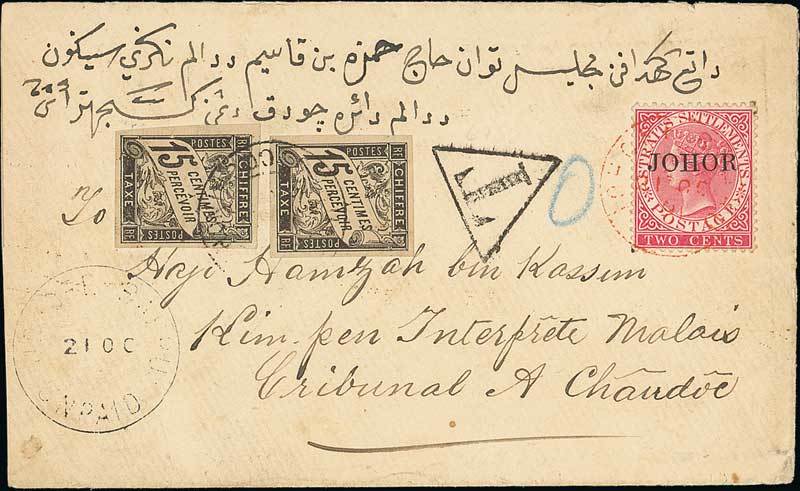 داتڠ کهدافن مجليس توان حاج حمزه بن قاسيم ددالم نکري سيکون
ددالم دائره چودق
POSTES
RF
CHIFFRE
TAXE
15
CENTIMES
PERCEVOIR
POSTES
RF
CHIFFRE
TAXE
15
CENTIMES
PERCEVOIR
POSTES
T
0
STRAITS SETTLEMENTS
JOHOR
POSTAGE
TWO CENTS
To
Haji Hamzah bin Kassim
Kim-pen Interprête Malais
Tribunal A Chaudôc
21 OC
UNPAID